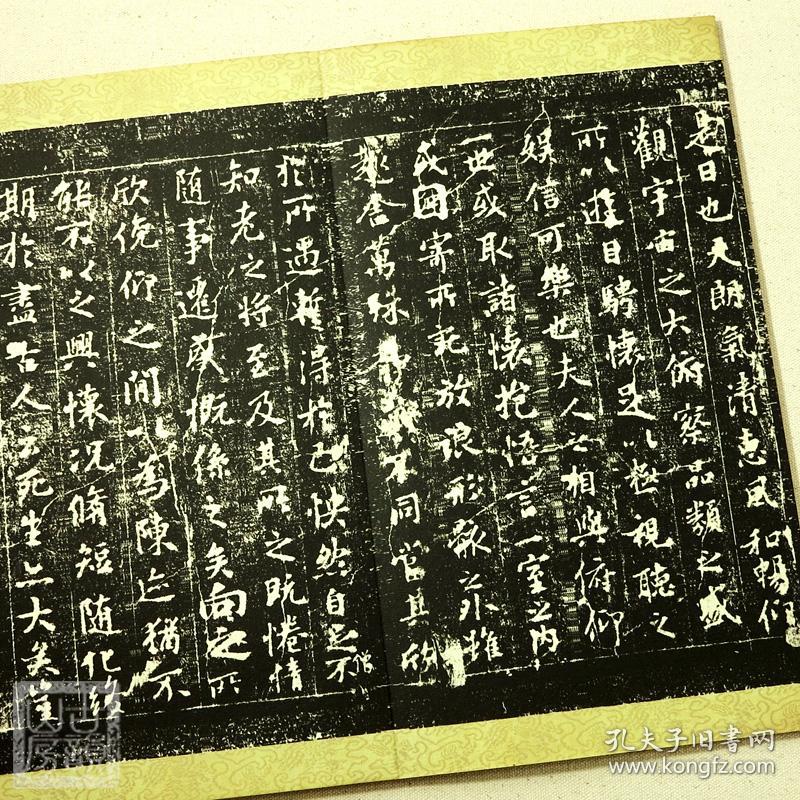 是日也天朗氣清惠風和暢仰
觀宇宙之大俯察品類之盛
所以遊目騁懷足以極視聽之
娛信可樂也夫人之相與俯仰
一世或取諸懷抱悟言一室之內
或因寄所託放浪形骸之外雖
趣舍萬殊靜躁不同當其欣
於所遇暫得於己怏然自足不
僧
知老之將至及其所之既惓情
隨事遷感慨係之矣向之所
欣俛仰之間以為陳迹猶不
能不以之興懷況脩短隨化終
期於盡古人云死生亦大矣豈
孔夫子旧書网
www.kongfz.com